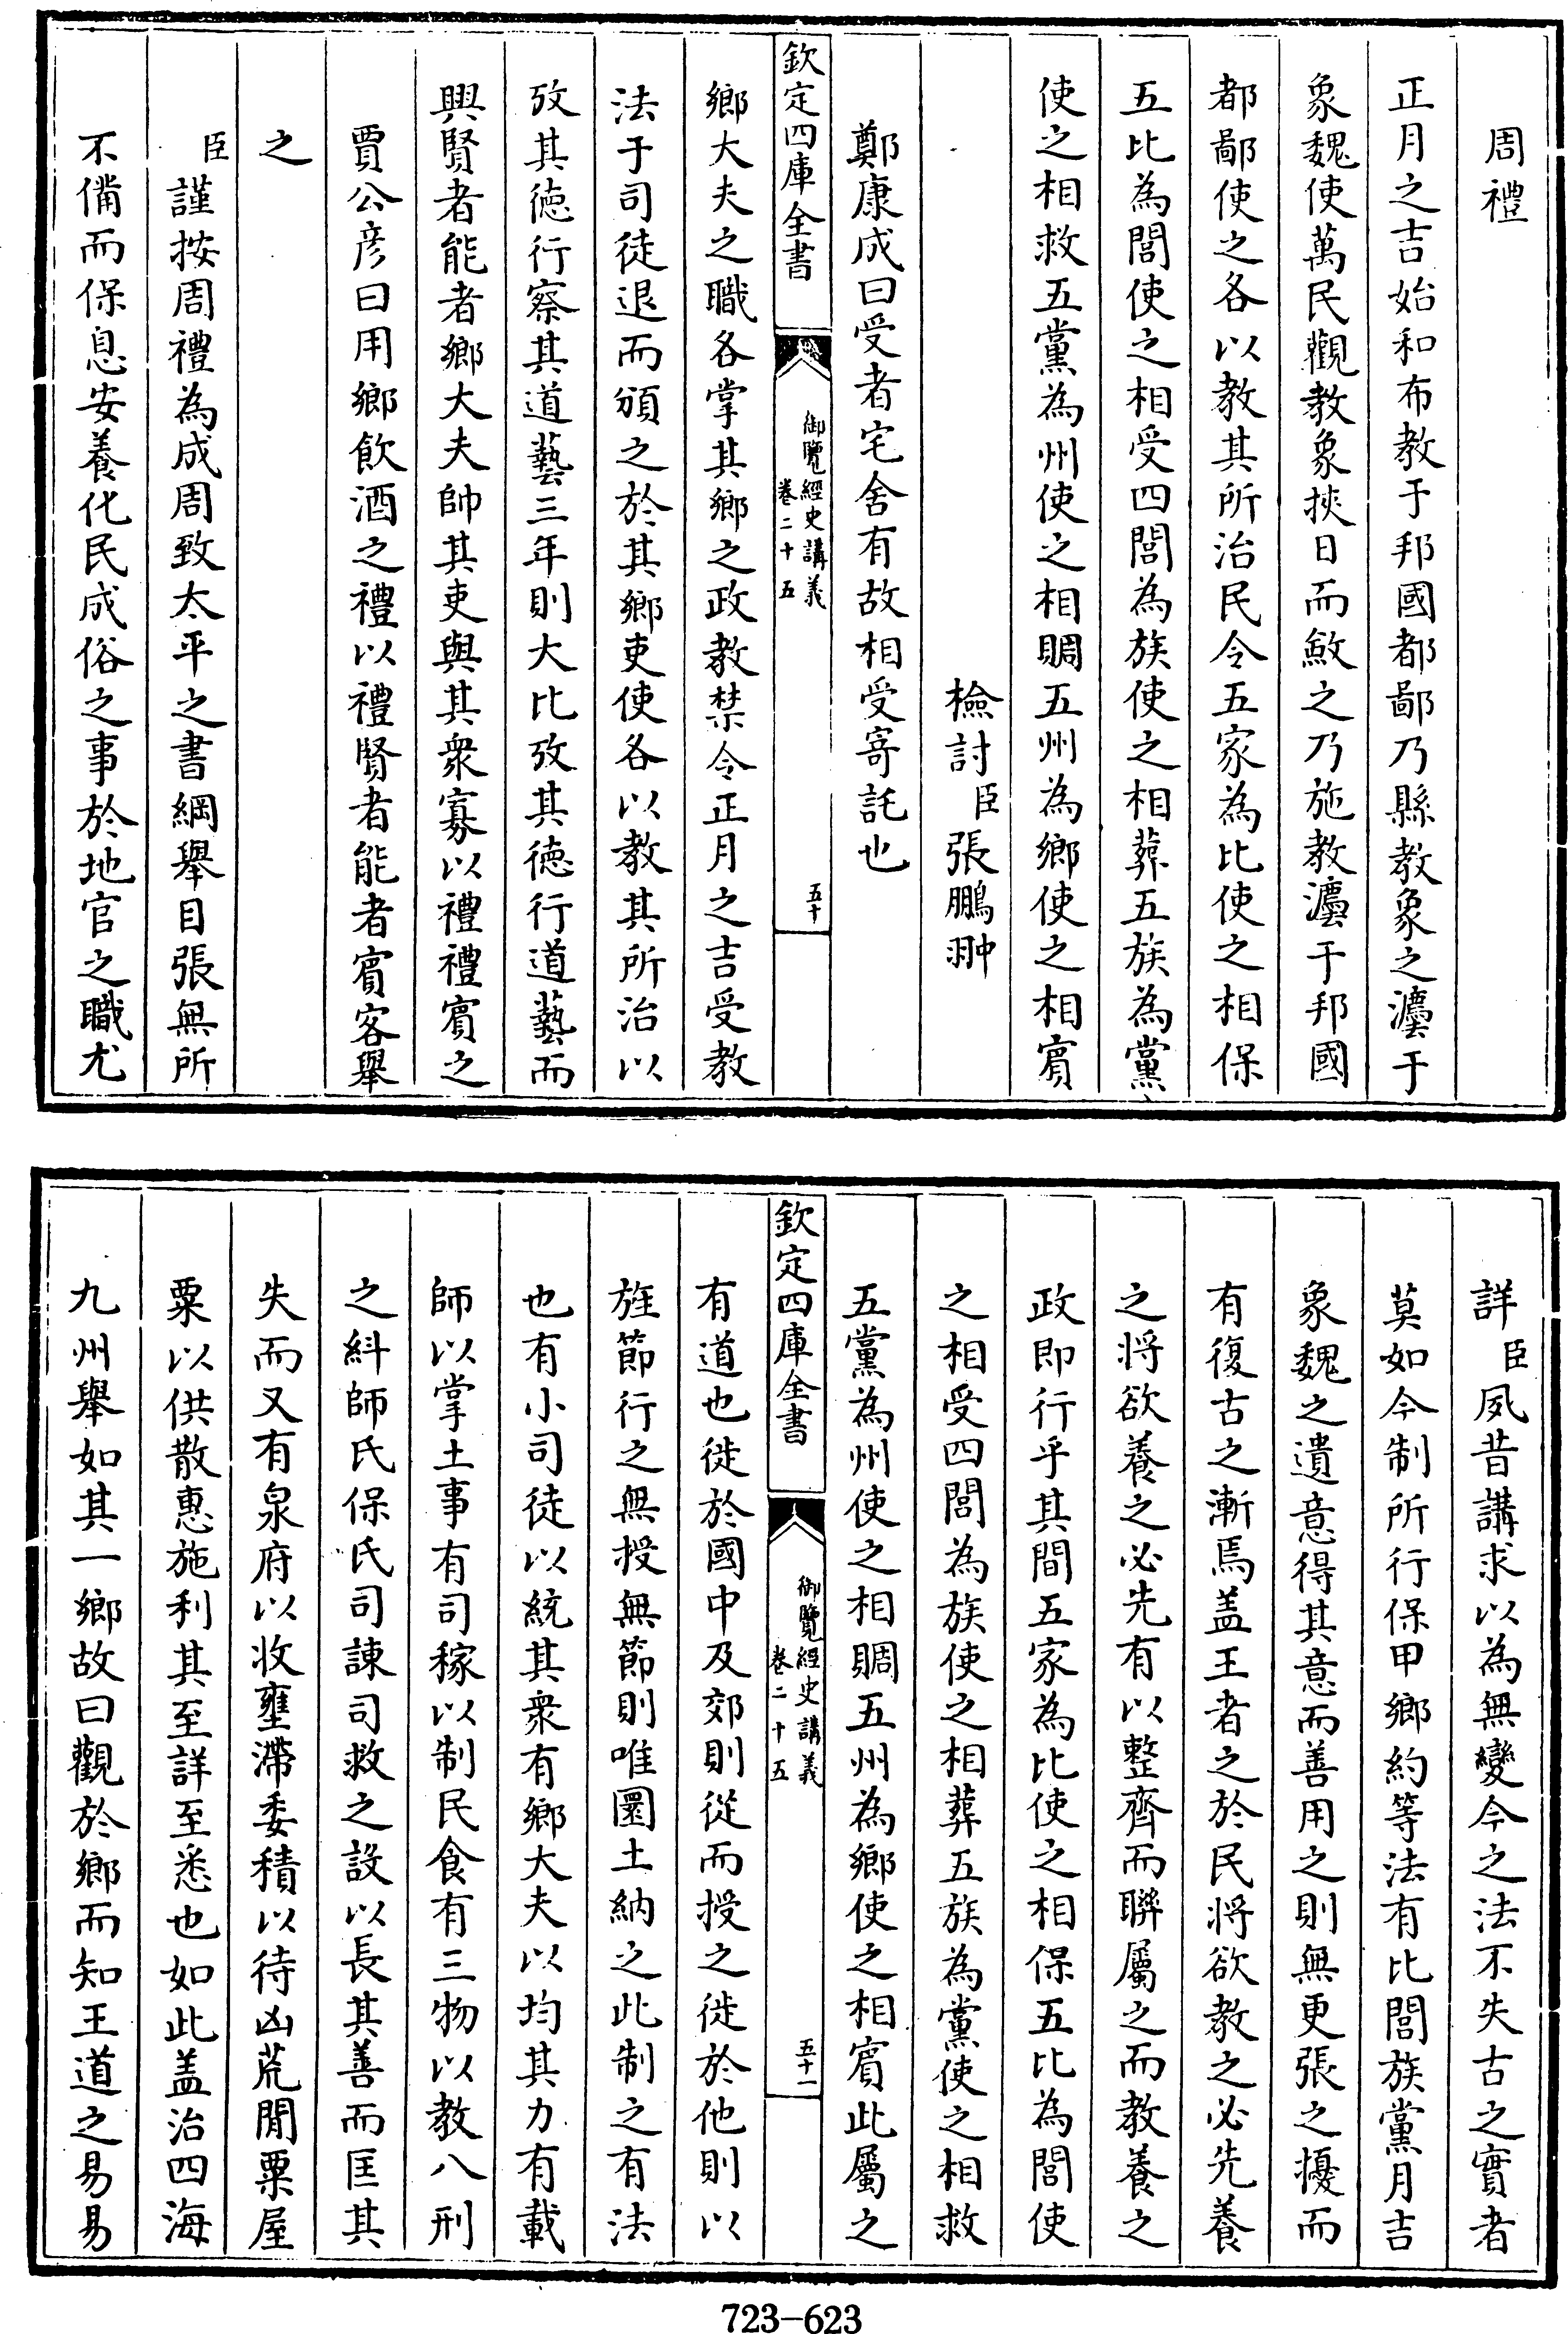 周禮
正月之吉始和布教于邦國都鄙乃縣教象之灋于
象魏使萬民觀教象挾日而斂之乃施教灋于邦國
都鄙使之各以教其所治民令五家為比使之相保
五比為閭使之相受四閭為族使之相葬五族為黨
使之相救五黨為州使之相賙五州為鄉使之相賓
檢討臣張鵬翀
鄭康成曰受者宅舍有故相受寄託也
欽定四庫全書
御覽經史講義
卷二十五
五十
鄉大夫之職各掌其鄉之政教禁令正月之吉受教
法于司徒退而頒之於其鄉吏使各以教其所治以
攷其徳行察其道藝三年則大比攷其徳行道藝而
興賢者能者鄉大夫帥其吏與其衆寡以禮禮賓之
賈公彦曰用鄉飲酒之禮以禮賢者能者賓客舉
之
臣謹按周禮為成周致太平之書綱舉目張無所
不備而保息安養化民成俗之事於地官之職尤
詳臣夙昔講求以為無變今之法不失古之實者
莫如今制所行保甲鄉約等法有比閭族黨月吉
象魏之遺意得其意而善用之則無更張之擾而
有復古之漸焉盖王者之於民將欲教之必先養
之將欲養之必先有以整齊而聨屬之而教養之
政即行乎其間五家為比使之相保五比為閭使
之相受四閭為族使之相葬五族為黨使之相救
五黨為州使之相賙五州為鄉使之相賓此屬之
欽定四庫全書
御覽經史講義
卷二十五
五十一
有道也徙於國中及郊則從而授之徙於他則以
旌節行之無授無節則唯圜土納之此制之有法
也有小司徒以統其衆有鄉大夫以均其力有載
師以掌土事有司稼以制民食有三物以教八刑
之糾師氏保氏司諫司救之設以長其善而匡其
失而又有泉府以收壅滯委積以待凶荒閒粟屋
粟以供散惠施利其至詳至悉也如此盖治四海
九州舉如其一鄉故曰觀於鄉而知王道之易易
723-623